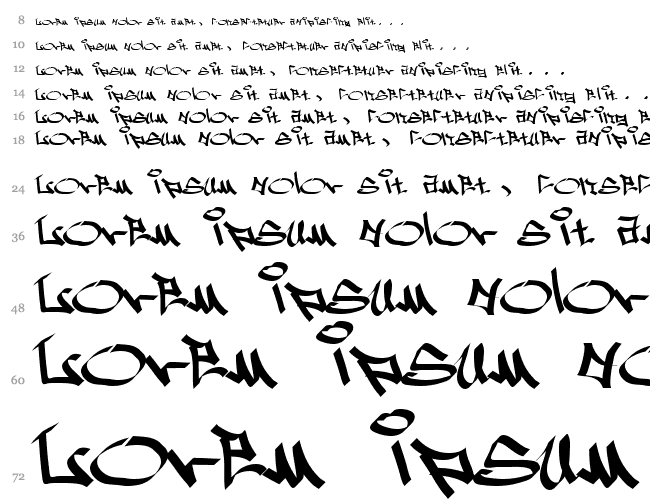 8 Lorem ipsum dolor sit amet, consectetuer adipiscing elit...
10 Lorem ipsum dolor sit amet, consectetuer adipiscing elit...
12 Lorem ipsum dolor sit amet, consectetuer adipiscing elit...
14 Lorem ipsum dolor sit amet, consectetuer adipiscing elit..
16 Lorem ipsum dolor sit amet, consectetuer adipiscing e
18 Lorem ipsum dolor sit amet, consectetuer adipis
24 Lorem ipsum dolor sit amet, consec
36 Lorem ipsum dolor sit a
48 Lorem ipsum dolor
60 Lorem ipsum do
72 Lorem ipsum